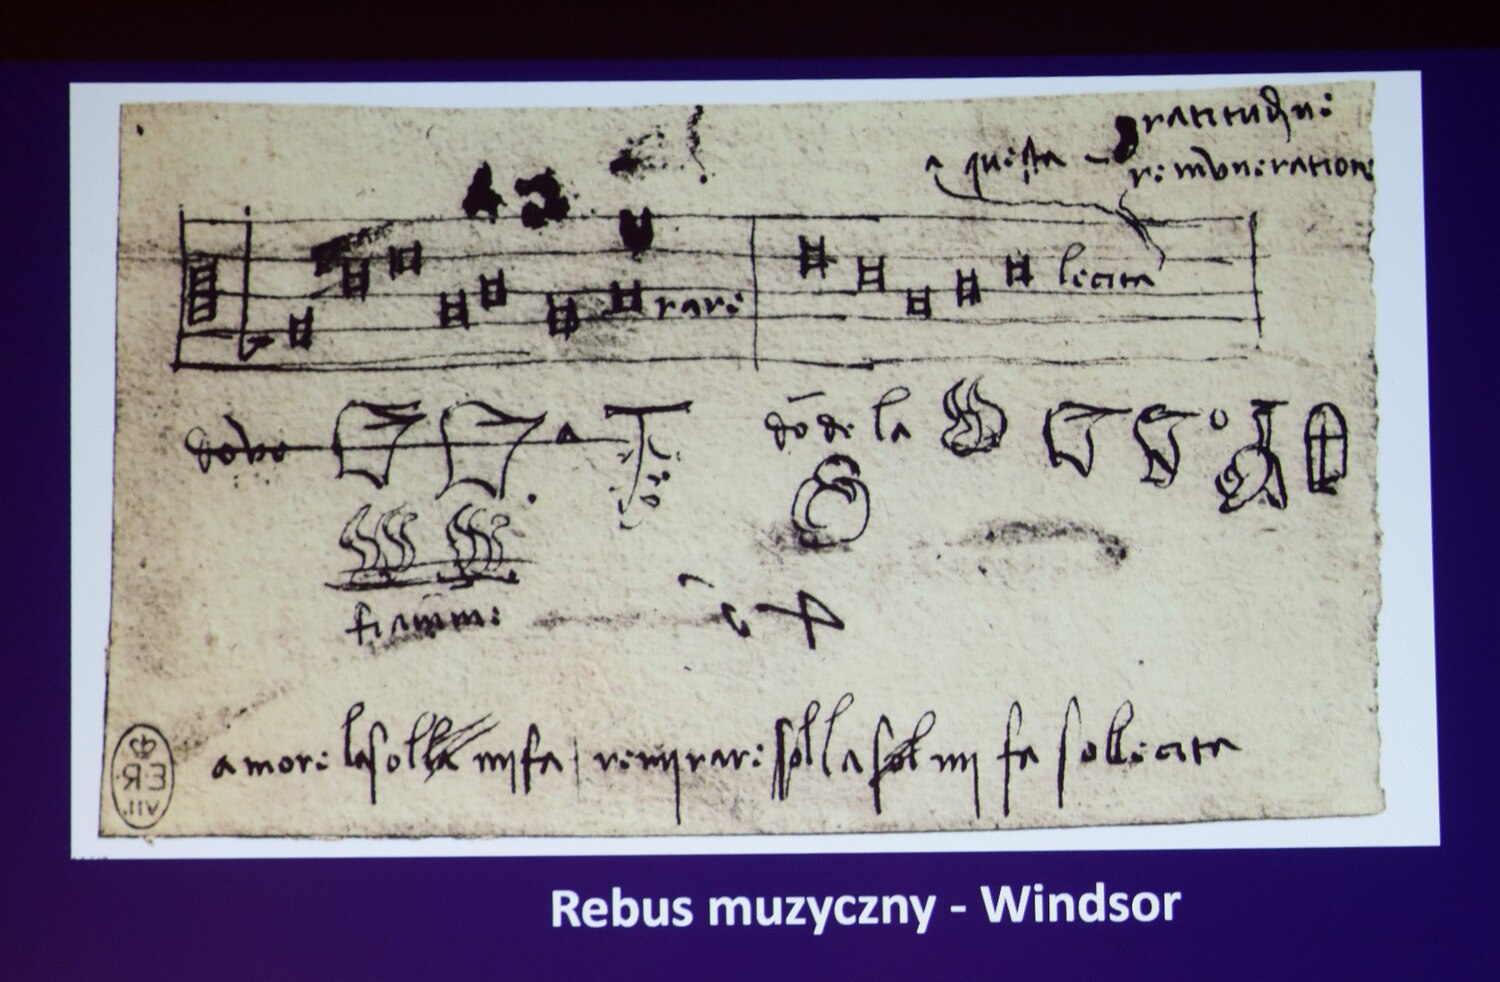 gratitudine
a questa
remuneratione
rare
lecita
dō de la
fiamme
amore la sol mi fa remirare sol la sol mi fa sollecita
ER
VII.
Rebus muzyczny - Windsor